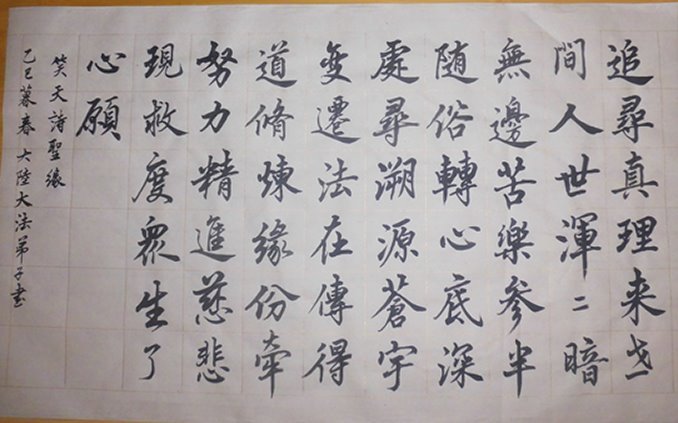 追尋真理来世
間人世渾二暗
無邊苦樂参半
随俗轉心底深
處尋溯源蒼宇
变遷法在傳得
道脩煉緣份牽
努力精進慈悲
現救度眾生了
心願
笑天詩聖緣
乙巳暮春 大陸大法弟子书